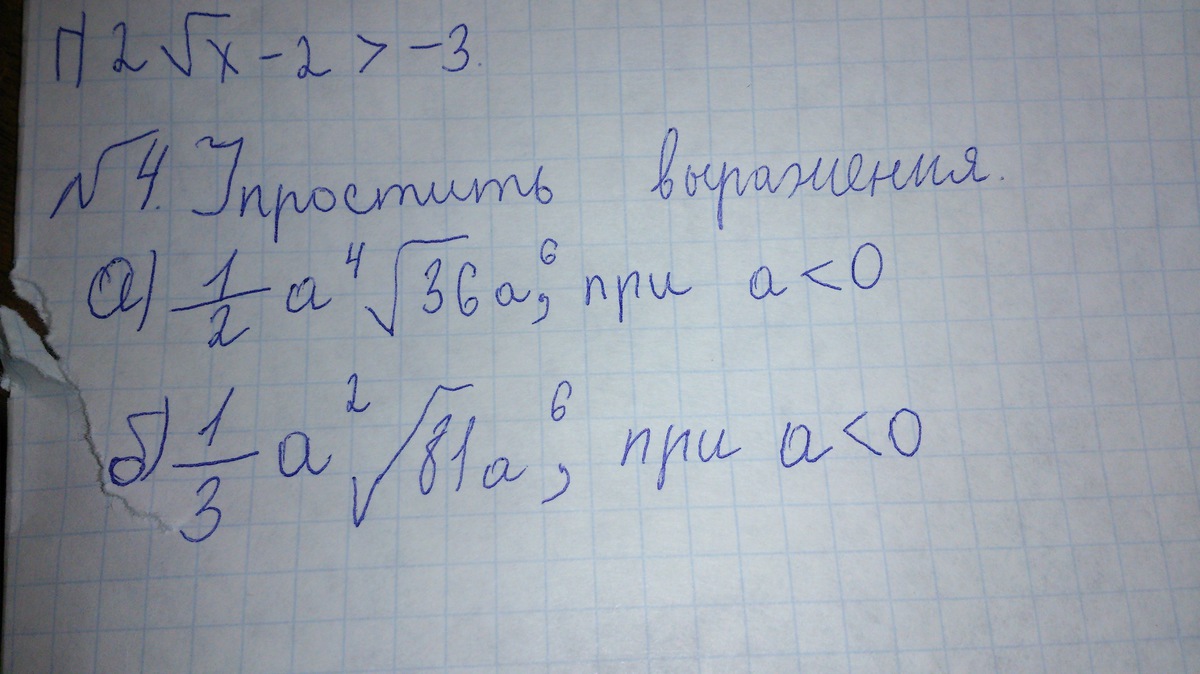 г) 2√x - 2 > -3.
№4. Упростить выражения.
а) 1/2 a⁴ √36a⁶, при a < 0
б) 1/3 a² √81a⁶, при a < 0